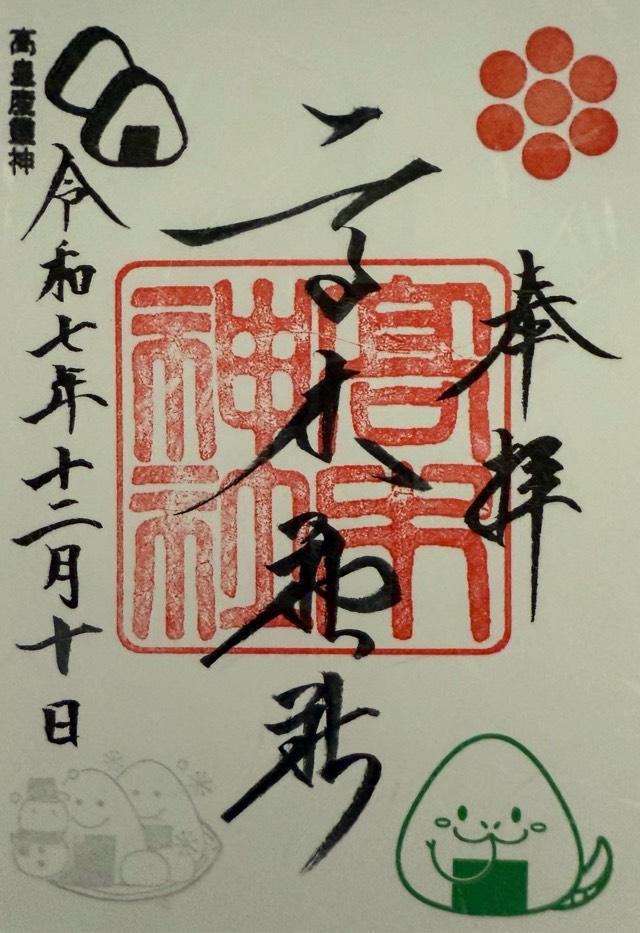 奉拝
高木神社
高木
神社
令和七年十二月十日
高皇産靈神